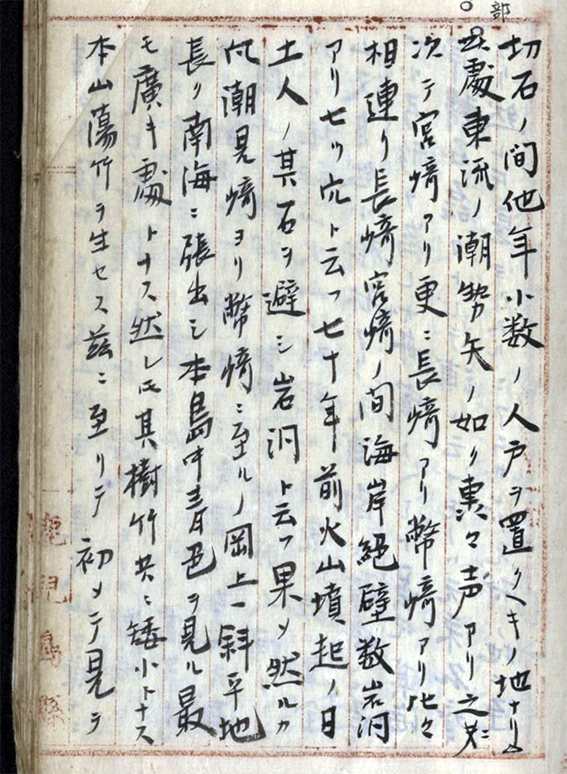 部
切石ノ間他年小数ノ人戸ヲ置クヘキノ地ナリ
此處東流ノ潮勢矢ノ如ク轟々声アリ之ニ
次テ宮﨑アリ更ニ長﨑アリ幣﨑アリ比々
相連リ長﨑宮﨑ノ間海岸絕壁数岩洞
アリ七ツ穴ト云フ七十年前火山墳起ノ日
土人ノ其石ヲ避シ岩洞ト云フ果メ然ルカ
此潮見﨑ヨリ幣﨑ニ至ルノ岡上一斜平地
長ク南海ニ張出シ本島中青色ヲ見ル最
モ廣キ處トナス然レ𪜈其樹竹共ニ矮小トナス
本山蕩竹ヲ生セス茲ニ至リテ初メテ見ラ
鹿児島縣